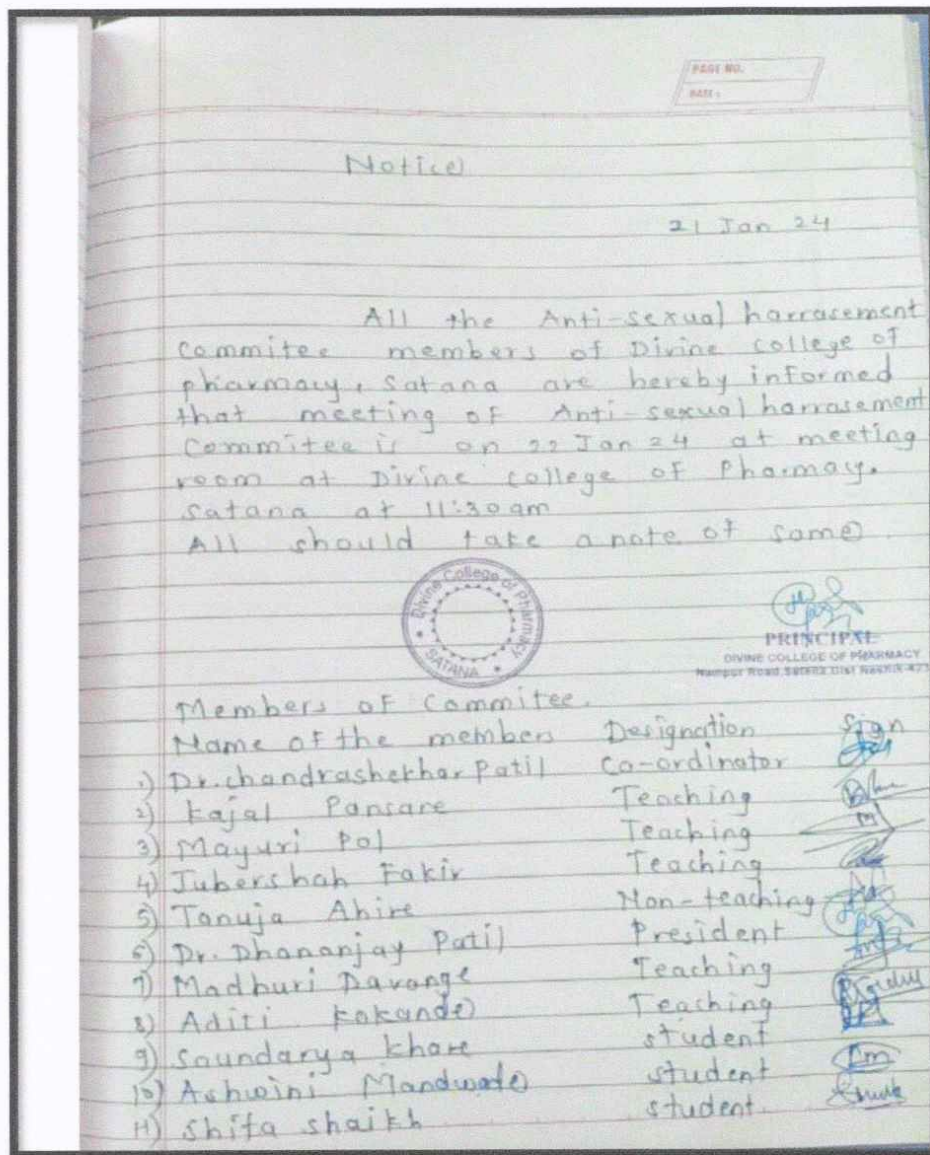 PAGE NO.
DATE :
Notice
21 Jan 24
All the Anti-sexual harrasement
Commitee members of Divine college of
pharmacy, Satana are hereby informed
that meeting of Anti-sexual harrasement
Commitee is on 22 Jan 24 at meeting
room at Divine college of Pharmacy.
Satana at 11:30am
All should take a note of same.
Divine College of Pharmacy
SATANA
PRINCIPAL
DIVINE COLLEGE OF PHARMACY
Nampur Road, Satana Dist Nashik-423
Members of Commitee.
Name of the members Designation Sign
1) Dr. chandrashekhar Patil Co-ordinator
2) Kajal Pansare Teaching
3) Mayuri Pol Teaching
4) Jubershah Fakir Teaching
5) Tanuja Ahire Non-teaching
6) Dr. Dhananjay Patil President
7) Madhuri Davange Teaching
8) Aditi Kokande Teaching
9) Saundarya Khare student
10) Ashwini Mandwade student
11) Shifa shaikh student.